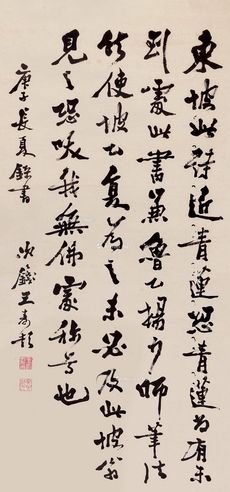 東坡此詩近青蓮恐青蓮有未
到處此書兼魯公楊少師筆法
使坡公復為之未必及此坡翁
見之恐笑我無佛處稱尊也
庚子長夏錄書
冰鐵王壽